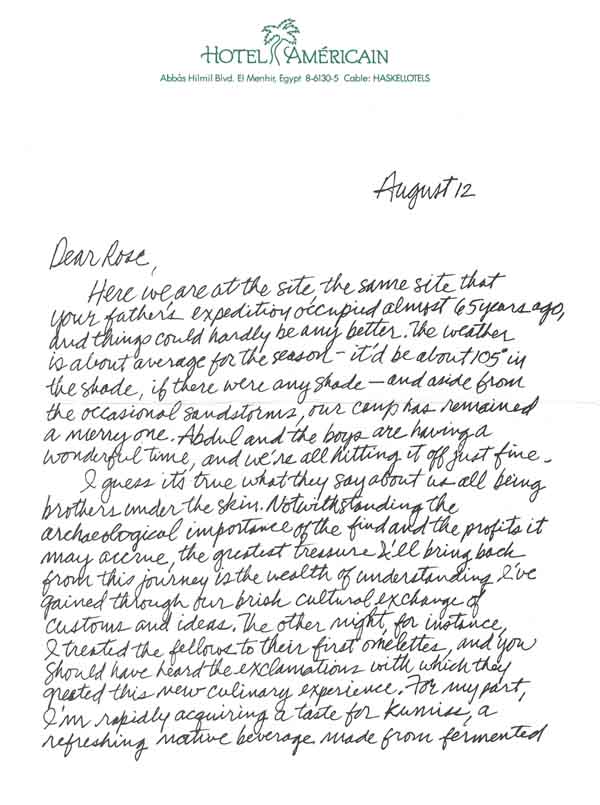 HOTEL AMÉRICAIN
Abbās Hilmil Blvd. El Menhir, Egypt 8-6130-5 Cable: HASKELLOTELS
August 12
Dear Rose,
Here we are at the site, the same site that
your father's expedition occupied almost 65 years ago,
and things could hardly be any better. The weather
is about average for the season - it'd be about 105° in
the shade, if there were any shade - and aside from
the occasional sandstorms, our camp has remained
a merry one. Abdul and the boys are having a
wonderful time, and we're all hitting it off just fine.
I guess it's true what they say about us all being
brothers under the skin. Notwithstanding the
archaeological importance of the find and the profits it
may accrue, the greatest treasure I'll bring back
from this journey is the wealth of understanding I've
gained through our brisk cultural exchange of
customs and ideas. The other night, for instance,
I treated the fellows to their first omelettes, and you
should have heard the exclamations with which they
greeted this new culinary experience. For my part,
I'm rapidly acquiring a taste for Kumiss, a
refreshing native beverage made from fermented